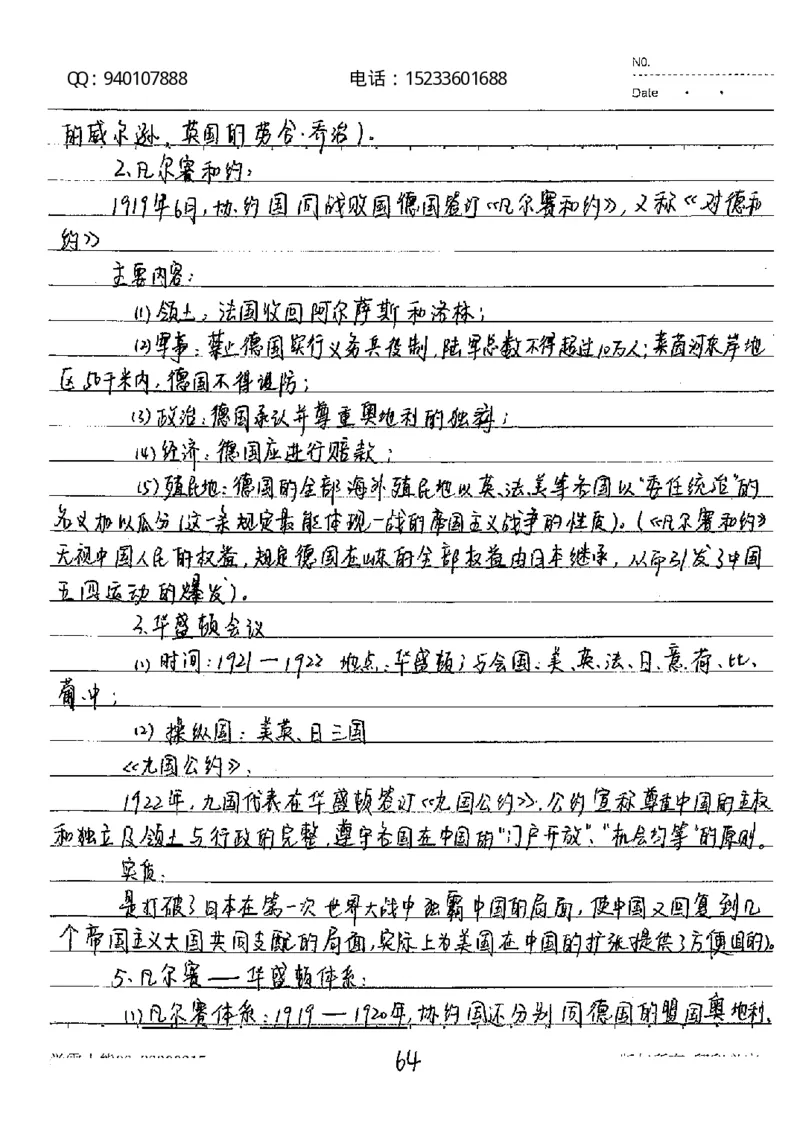 QQ：940107888
电话：15233601688
NO.
Date
的威尔逊、英国的劳合·乔治）。
2、凡尔赛和约：
1919年6月，协约国同战败国德国签订《凡尔赛和约》，又称《对德和
约》
主要内容：
(1)领土：法国收回阿尔萨斯和洛林；
(2)军事：禁止德国实行义务兵役制，陆军总数不得超过10万人；莱茵河东岸地
区50千米内，德国不得设防；
(3)政治：德国承认并尊重奥地利的独立；
(4)经济：德国应进行赔款；
(5)殖民地：德国的全部海外殖民地以英、法、美等各国以“委任统治”的
名义加以瓜分（这一条规定最能体现一战的帝国主义战争的性质）。（《凡尔赛和约》
无视中国人民的权益，规定德国在山东的全部权益由日本继承，从而引发了中国
五四运动的爆发）。
3、华盛顿会议
(1)时间：1921—1922 地点：华盛顿；与会国：美、英、法、日、意、荷、比、
葡、中；
(2)操纵国：美英、日三国
《九国公约》：
1922年，九国代表在华盛顿签订《九国公约》，公约宣称尊重中国的主权
和独立及领土与行政的完整，遵守各国在中国的“门户开放”、“机会均等”的原则。
实质：
是打破了日本在第一次世界大战中独霸中国的局面，使中国又回复到几
个帝国主义大国共同支配的局面，实际上为美国在中国的扩张提供了方便
5、凡尔赛——华盛顿体系：
(1)凡尔赛体系：1919—1920年，协约国还分别同德国的盟国奥地利、
64